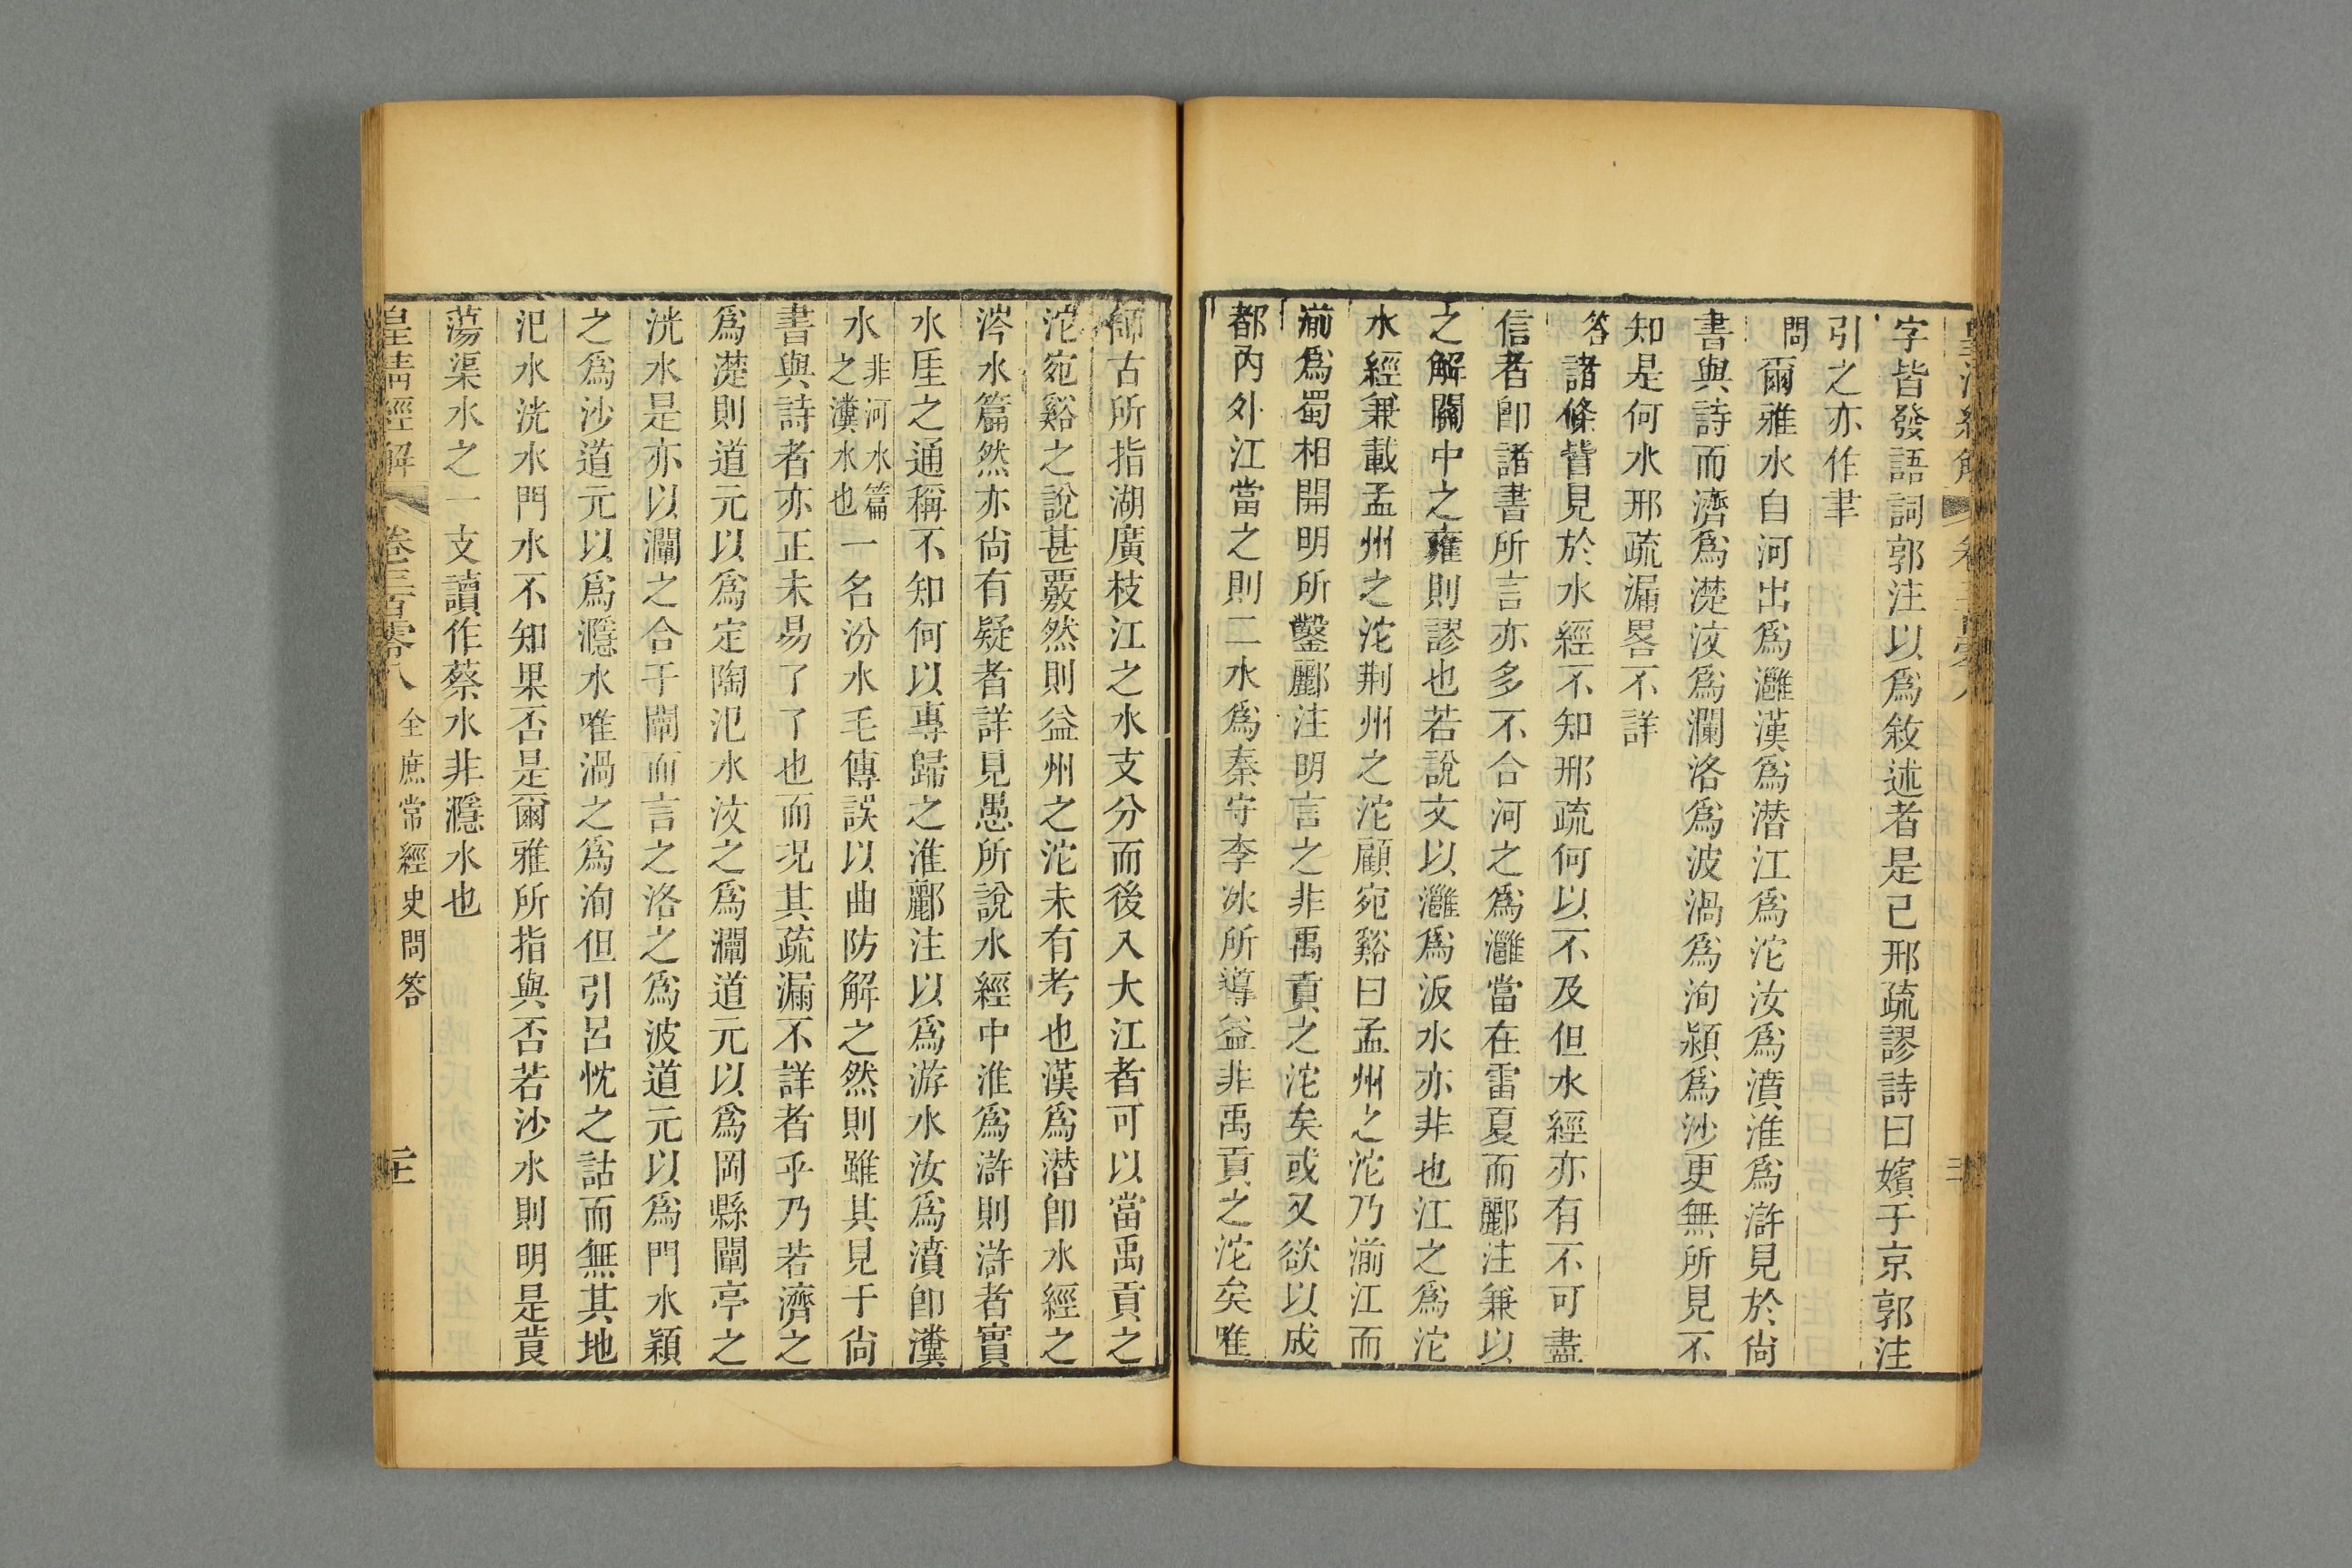 字皆發語詞郭注以為敘述者是已邢疏謬詩曰嬪于京郭注
引之亦作聿
問爾雅水自河出為灉漢為潛江為沱汝為濆淮為滸見於尚
書與詩而濟為濋汶為瀾洛為波渦為洵潁為沙更無所見不
知是何水邢疏漏畧不詳
答諸條皆見於水經不知邢疏何以不及但水經亦有不可盡
信者卽諸書所言亦多不合河之為灉當在雷夏而酈注兼以
之解關中之雍則謬也若說文以灉為汳水亦非也江之為沱
水經兼載孟州之沱荆州之沱顧宛谿曰孟州之沱乃湔江而
湔為蜀相開明所鑿酈注明言之非禹貢之沱矣或又欲以成
都內外江當之則二水為秦守李冰所導益非禹貢之沱矣唯
師古所指湖廣枝江之水支分而後入大江者可以當禹貢之
沱宛谿之說甚覈然則益州之沱未有考也漢為潛卽水經之
涔水篇然亦尙有疑者詳見愚所說水經中淮為滸則滸者實
水厓之通稱不知何以專歸之淮酈注以為游水汝為濆卽瀵
水非河水篇之瀵水也一名汾水毛傳誤以曲防解之然則雖其見于尙
書與詩者亦正未易了了也而況其疏漏不詳者乎乃若濟之
為濋則道元以為定陶氾水汶之為瀾道元以為岡縣闡亭之
洸水是亦以瀾之合于闡而言之洛之為波道元以為門水潁
之為沙道元以為濦水唯渦之為洵但引呂忱之詁而無其地
汜水洸水門水不知果否是爾雅所指與否若沙水則明是莨
蕩渠水之一支讀作蔡水非濦水也
皇清經解 卷三百零八 全庶常經史問答 三十